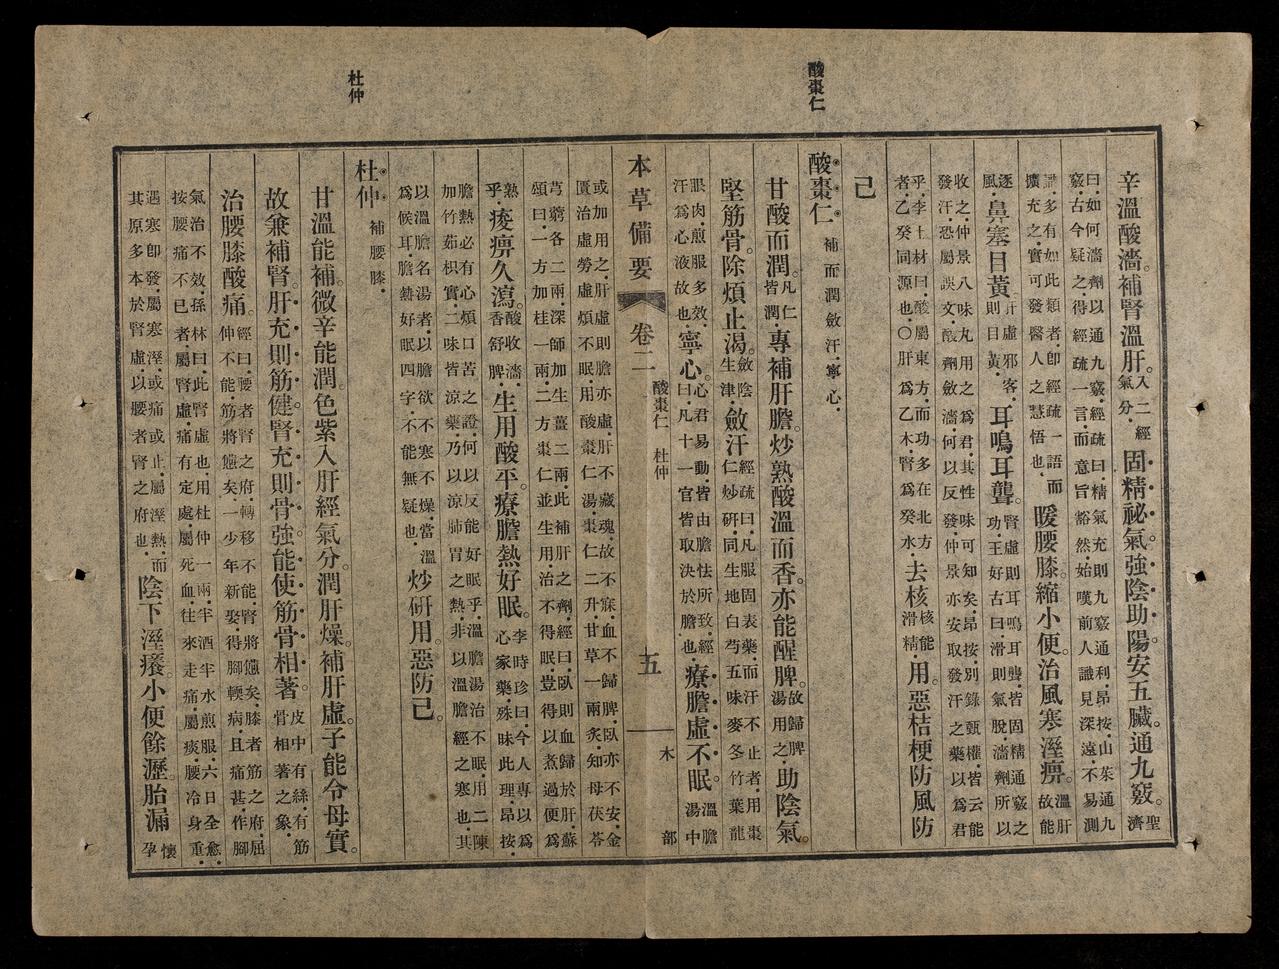 酸棗仁
杜仲
辛溫酸濇。補腎溫肝。入二經氣分。固精祕氣。強陰助陽。安五臟。通九竅。聖濟
曰。如何濇劑以通九竅。經疏曰。精氣充則九竅通利。昂按。山茱通九
竅。古今疑之。得經疏一言。而意旨豁然。始嘆前人識見深遠。不易測
識。多有如此類者。即經疏一語。而擴充之。實可發醫人之慧悟也。暖腰膝。縮小便。治風寒溼痹。溫肝故能
逐風。鼻塞目黃。肝虛邪客。則目黃。耳鳴耳聾。腎虛則耳鳴耳聾。皆固精通竅之功。王好古曰。滑則氣脫。濇劑所以
收之。仲景八味丸用之為君。其性味可知矣。昂按。別錄甄權。皆云能
發汗。恐屬誤文。酸劑斂濇何以反發。仲景亦安取發汗之藥以為君
乎。李士材曰。酸屬東方。而功多在北方者。乙癸同源也。〇肝為乙木。腎為癸水。去核。核能滑精。用。惡桔梗防風防
己
酸棗仁 補而潤斂汗。寧心。
甘酸而潤。凡仁皆潤。專補肝膽。炒熟酸溫而香。亦能醒脾。故歸脾湯用之。助陰氣。
堅筋骨。除煩止渴。斂陰生津。斂汗經疏曰。凡服固表藥。而汗不止者。用棗仁炒研。同生地白芍五味麥冬竹葉龍
眼肉。煎服多效。汗為心液故也。寧心。心君易動。皆由膽怯所致。經曰。凡十一官皆取決於膽也。療膽虛不眠。溫膽湯中
本草備要 卷二 酸棗仁 杜仲 五 木部
或加用之。肝虛則膽亦虛。肝不藏魂。故不寐。血不歸脾。臥亦不安。金
匱治虛勞虛煩不眠。用酸棗仁湯。棗仁二升。甘草一兩炙。知母茯苓
芎藭各二兩。深師加生薑二兩。此補肝之劑。經曰。臥則血歸於肝。蘇
頌曰。一方加桂一兩。二方棗仁並生用。治不得眠。豈得以煮過便為
熟乎。痠痹久瀉。酸收濇。香舒脾。生用酸平。療膽熱好眠。李時珍曰。今人專以為心家藥。殊昧此理。昂按。
膽熱必有心煩口苦之證。何以反能好眠乎。溫膽湯治不眠。用二陳
加竹茹枳實。二味皆涼藥。乃以涼肺胃之熱。非以溫膽經之寒也。其
以溫膽名湯者。以膽欲不寒不燥。當溫為候耳。膽熱好眠四字。不能無疑也。炒研用。惡防己。
杜仲 補腰膝。
甘溫能補。微辛能潤。色紫入肝經氣分。潤肝燥。補肝虛。子能令母實。
故兼補腎。肝充則筋健。腎充則骨強。能使筋骨相著。皮中有絲。有筋骨相著之象。
治腰膝酸痛。經曰。腰者腎之府。轉移不能。腎將憊矣。膝者筋之府。屈伸不能。筋將憊矣。一少年新娶。得腳輭病。且痛甚。作腳
氣治不效。孫林曰。此腎虛也。用杜仲一兩。半酒半水煎服。六日全愈。
按腰痛不已者。屬腎虛。痛有定處。屬死血。往來走痛。屬痰。腰冷身重。
遇寒即發。屬寒溼。或痛或止。屬溼熱。而其原多本於腎虛。以腰者腎之府也。陰下溼癢。小便餘瀝。胎漏懷孕